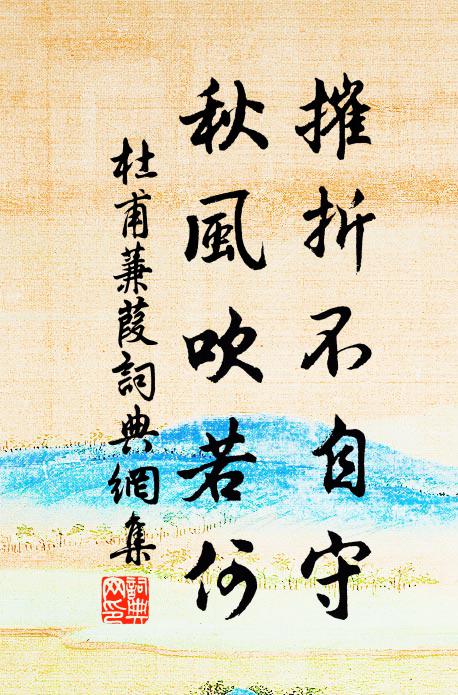 摧折不自守
秋風吹若何
杜甫蒹葭詞典網集